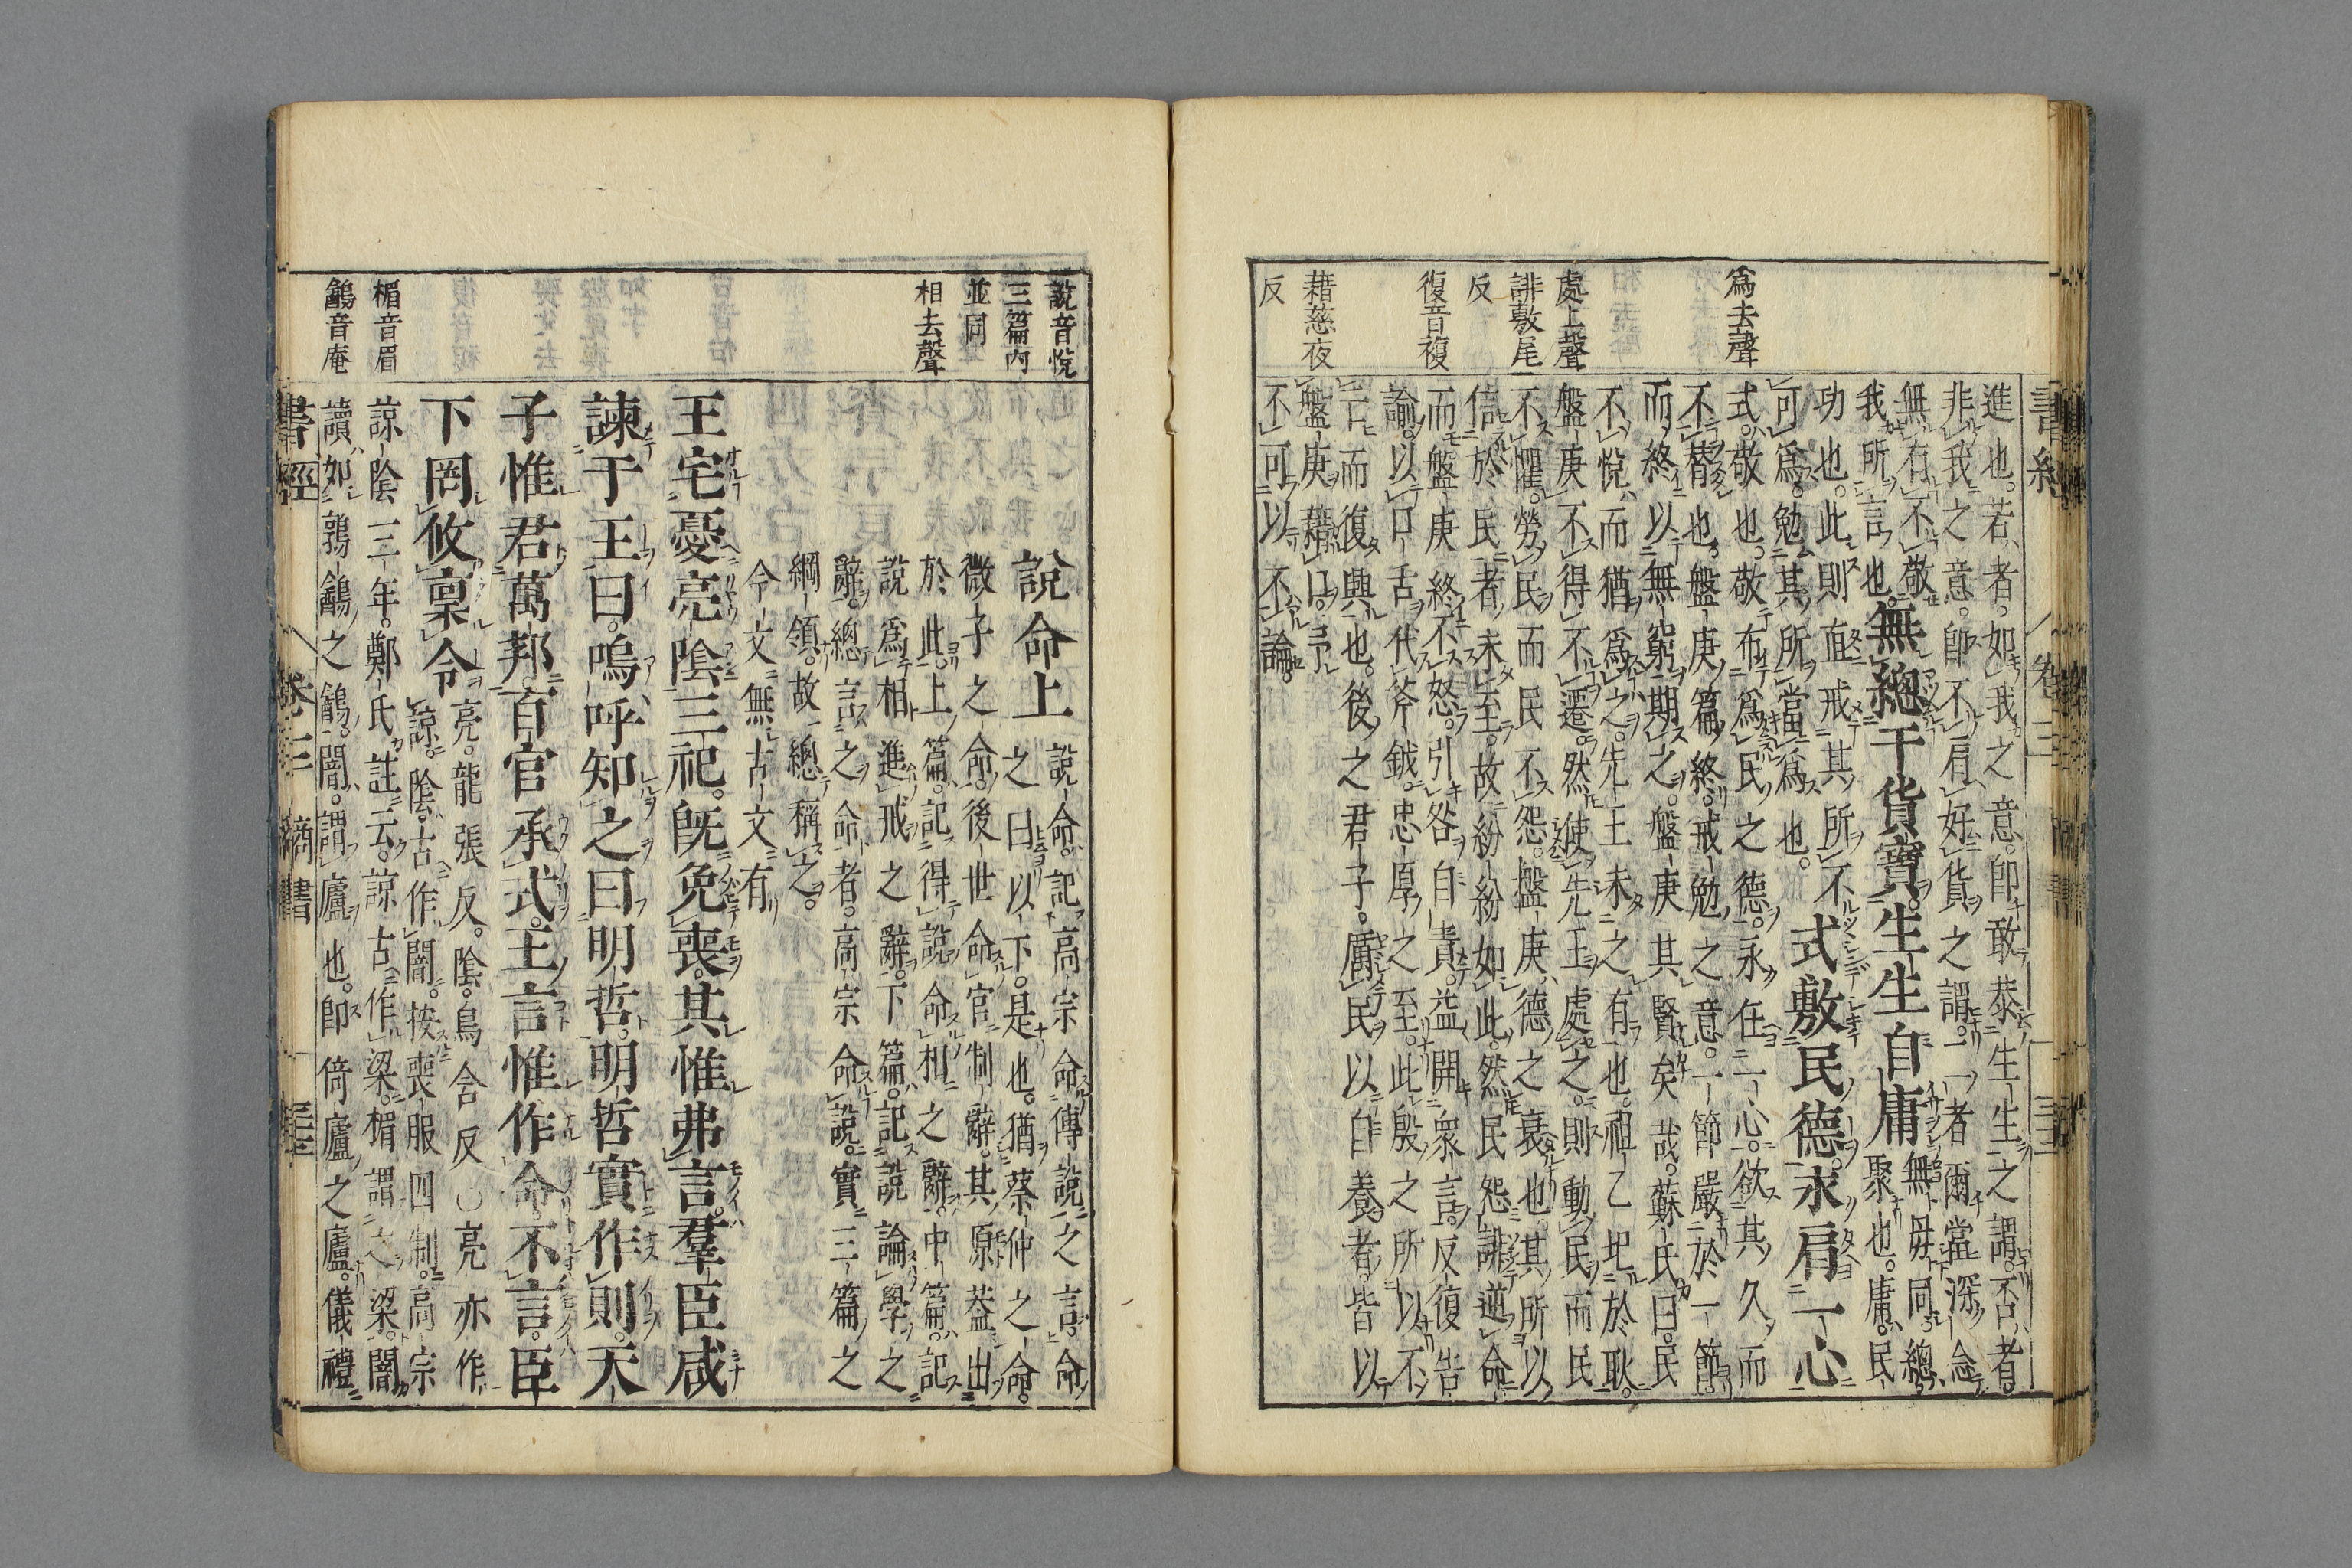 爲去聲
處上聲
誹敷尾
反
復音複
藉慈夜
反
進也。若者。如我之意。即敢恭生生之謂。否者。
非我之意。即不肩好貨之謂。二者爾當深念
無有不敬
我所言也。
無總于貨寶。生生自庸
無毋同。總
聚也。庸。民
功也。此則直戒其所不
可爲。勉其所當爲也。
式敷民德。永肩一心
式。敬也。敬布爲民之德。永任一心。欲其久而
不替也。盤庚篇終。戒勉之意。一節嚴於一節。
而終以無窮期之。盤庚其賢矣哉。蘇氏曰。民
不悅而猶爲之。先王未之有也。祖乙圯於耿。
盤庚不得不遷。然使先王處之。則動民而民
不懼。勞民而民不怨。盤庚德之衰也。其所以
信於民者未至。故紛紛如此。然民怨誹逆命。
而盤庚終不怒。引咎自責。益開衆言。反復告
諭。以口舌代斧鉞。忠厚之至。此殷之所以不
亡而復興也。後之君子。厲民以自養者。皆以
盤庚藉口。予
不可以不論。
說音悅
三篇內
並同
相去聲
楣音眉
䳺音庵
說命上
說命。記高宗命傅說之言。命
之曰以下。是也。猶蔡仲之命。
微子之命。後世命官制辭。其原蓋出
於此。上篇。記得說命相之辭。中篇。記
說爲相進戒之辭。下篇。記說論學之
辭。總言之命者。高宗命說。實三篇之
綱領。故總稱之。
今文無。古文有
王宅憂亮陰三祀。旣免喪。其惟弗言。羣臣咸
諫于王曰。嗚呼知之曰明哲。明哲實作則。天
子惟君萬邦。百官承式。王言惟作命。不言。臣
下罔攸稟令
亮。龍張反。陰。烏含反。○亮亦作
諒。陰。古作闇。按喪服四制。高宗
諒陰三年。鄭氏註云。諒古作梁。楣謂之梁。闇
讀如鶉䳺之䳺。闇。謂廬也。即倚廬之廬。儀禮
書經 卷三